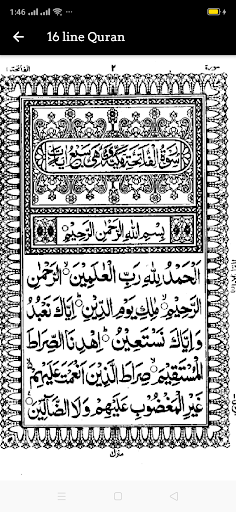 1:46
16 line Quran
سورة ٢ الفاتحة ١
سُوْرَةُ الْفَاتِحَةِ مَكِّيَّةٌ وَّهِيَ سَبْعُ اٰيَاتٍ
بِسْمِ اللّٰهِ الرَّحْمٰنِ الرَّحِيْمِ
اَلْحَمْدُ لِلّٰهِ رَبِّ الْعٰلَمِيْنَ ۙ الرَّحْمٰنِ
الرَّحِيْمِ ۙ مٰلِكِ يَوْمِ الدِّيْنِ ؕ اِيَّاكَ نَعْبُدُ
وَ اِيَّاكَ نَسْتَعِيْنُ ؕ اِهْدِنَا الصِّرَاطَ
الْمُسْتَقِيْمَ ۙ صِرَاطَ الَّذِيْنَ اَنْعَمْتَ عَلَيْهِمْ
غَيْرِ الْمَغْضُوْبِ عَلَيْهِمْ وَلَا الضَّآلِّيْنَ
منزل